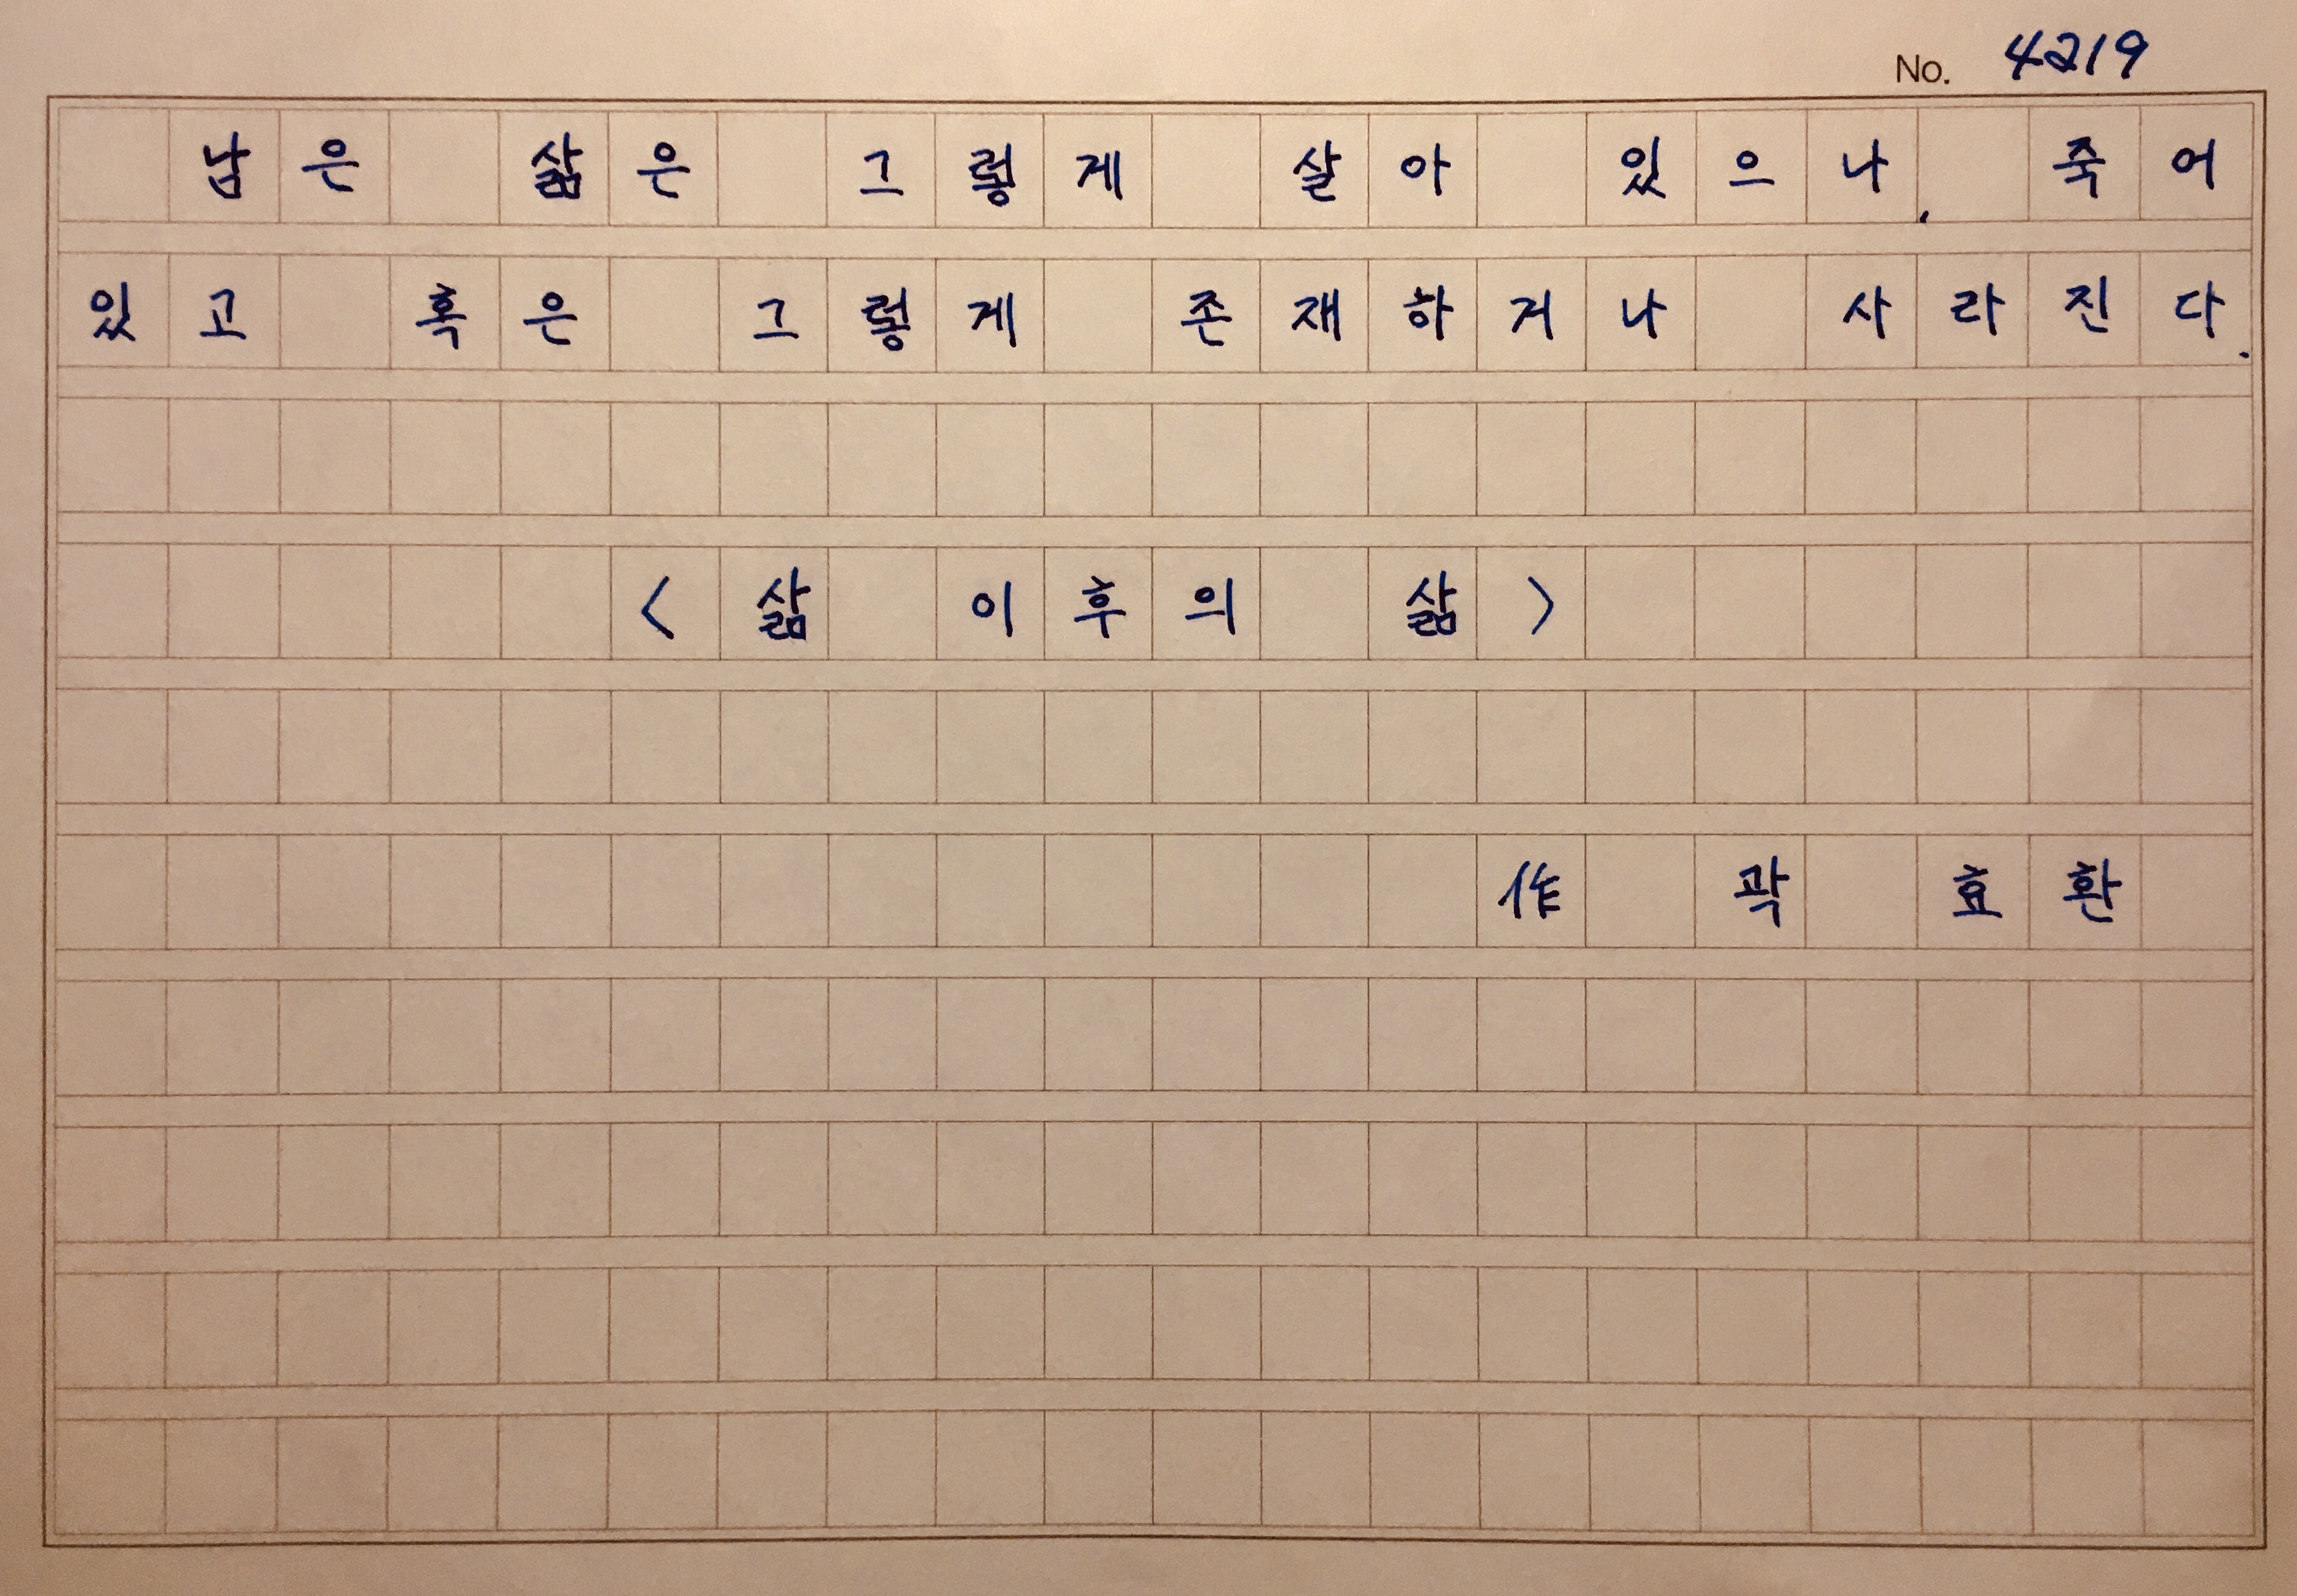 No. 4219
남은 삶은 그렇게 살아 있으나, 죽어
있고 혹은 그렇게 존재하거나 사라진다.
<삶 이후의 삶>
作 곽 효환